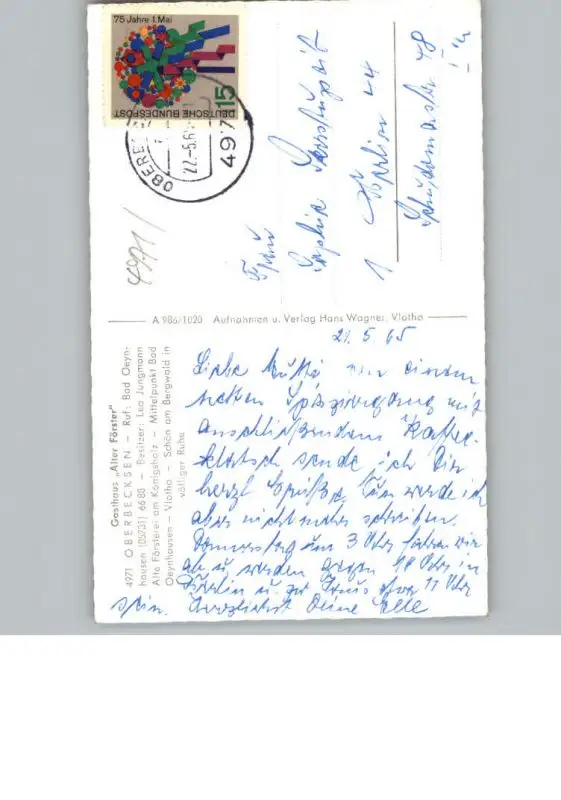 75 Jahre 1. Mai
15
DEUTSCHE BUNDESPOST
4971
22.-5.65
4971
Frau
Sophie
1 Berlin 44
48
A 986/1020 Aufnahmen u. Verlag Hans Wagner, Vlotho
Gasthaus „Alter Förster"
4971 OBERBECKSEN – Ruf: Bad Oeyn-
hausen (05731) 6680 – Besitzer: Lisa Jungmann
Alte Försterei am Königsholz – Mittelpunkt Bad
Oeynhausen – Vlotho – Schön am Bergwald in
völliger Ruhe
21.5.65
Liebe Mutti von einem
netten Spaziergang mit
anschließendem Kaffee-
klatsch sende ich Dir
herzl. Grüße. Nun werde ich
aber nicht mehr schreiben.
Donnerstag um 3 Uhr fahren wir
ab u. werden gegen 10 Uhr in
Berlin u. zu Haus etwa 11 Uhr
sein. Herzlichst Deine